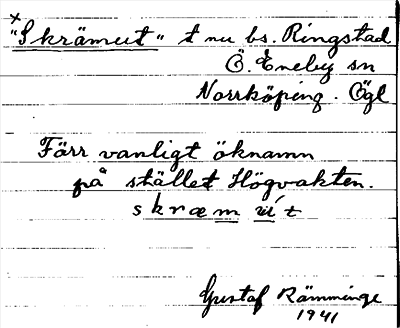 x
"Skrämut" t nu bs. Ringstad
Ö. Eneby sn
Norrköping. Ögl
Förr vanligt öknamn
på stället Högvakten.
skræm út
Gustaf Rämminge
1941